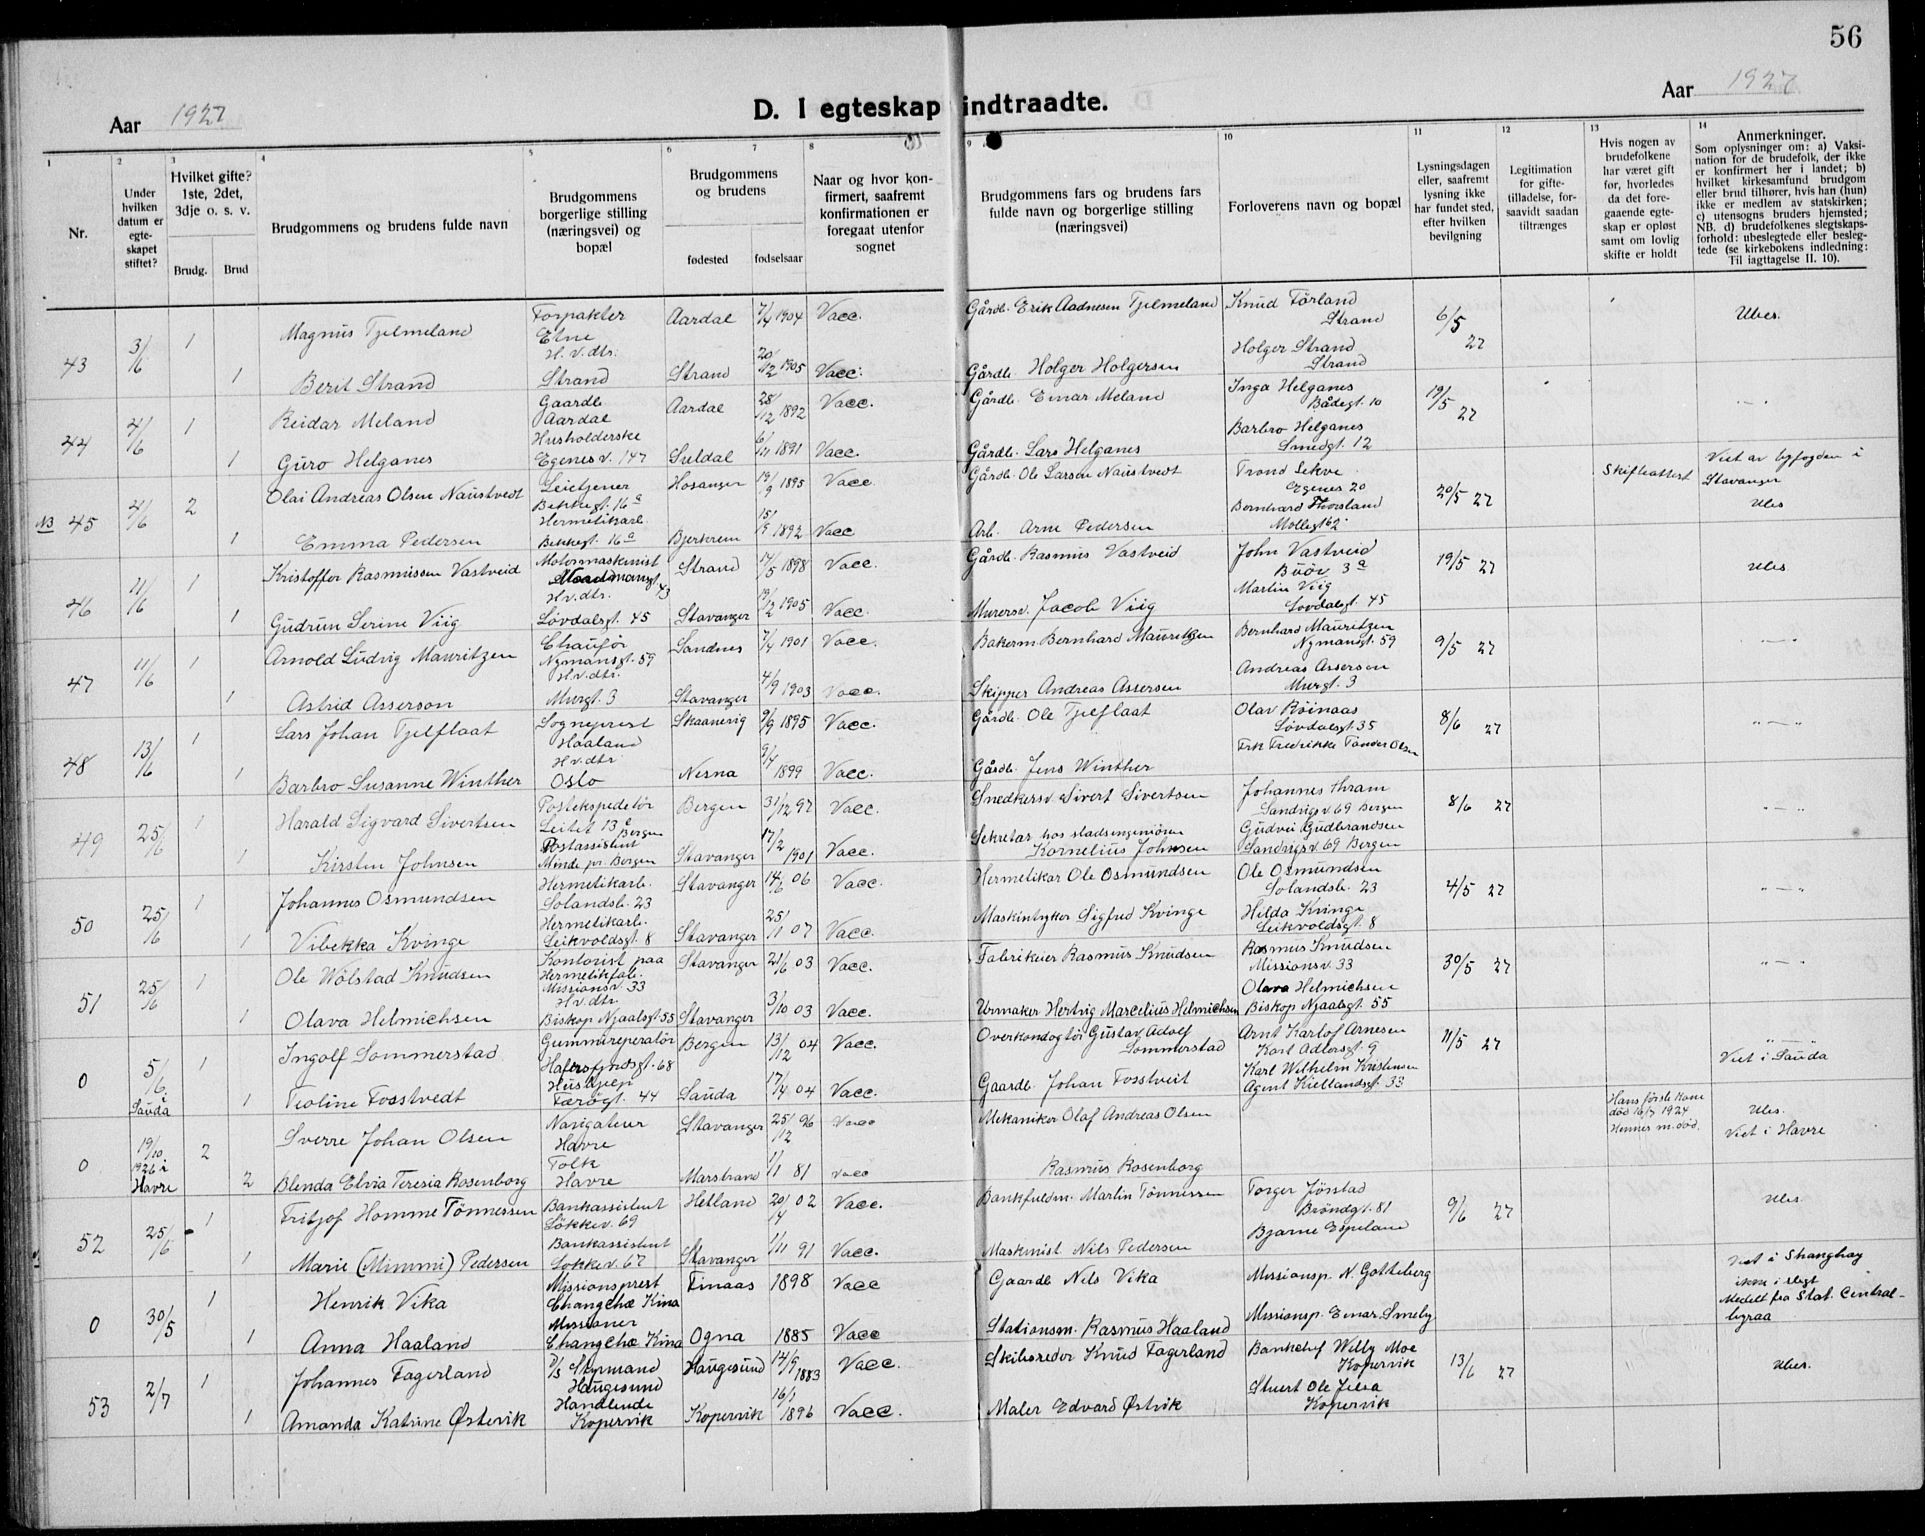 56
Aar 1927
D. I egteskap indtraadte.
Aar 1927
1 2 3 4 5 6 7 8 9 10 11 12 13 14
Nr.
Under hvilken datum er egte- skapet stiftet?
Hvilket gifte? 1ste, 2det, 3dje o. s. v.
Brudg. Brud
Brudgommens og brudens fulde navn
Brudgommens borgerlige stilling (næringsvei) og bopæl
Brudgommens og brudens
fødested fødselsaar
Naar og hvor kon- firmert, saafremt konfirmationen er foregaat utenfor sognet
Brudgommens fars og brudens fars fulde navn og borgerlige stilling (næringsvei)
Forloverens navn og bopæl
Lysningsdagen eller, saafremt lysning ikke har fundet sted, efter hvilken bevilgning
Legitimation for gifte- tilladelse, for- saavidt saadan tiltrænges
Hvis nogen av brudefolkene har været gift før, hvorledes da det fore- gaaende egte- skap er opløst samt om lovlig skifte er holdt
Anmerkninger.
Som oplysninger om: a) Vaksi- nation for de brudefolk, der ikke er konfirmert her i landet; b) hvilket kirkesamfund brudgom eller brud tilhører, hvis han (hun) ikke er medlem av statskirken; c) utensogns bruders hjemsted; NB. d) brudefolkenes slegtskaps- forhold: ubeslegtede eller besleg- tede (se kirkebokens indledning: Til iagttagelse II. 10).
43 3/6 1 Magnus Tjelmeland Forpakter Etne Aardal 7/4 1904 Vacc. Gårdb. Erik Aadnesen Tjelmeland Knud Førland Strand 6/5 27 Ubes.
1 Berit Strand H.v.dtr. Strand Strand 20/12 1905 Vacc. Gårdb. Holger Holgersen Holger Strand Strand
44 4/6 1 Reidar Meland Gaardb. Aardal Aardal 28/12 1892 Vacc. Gårdb. Einar Meland Inga Helganes Bådegt. 10 19/5 27 - " -
1 Guro Helganes Husholderske Egenesv. 147 Suldal 6/11 1891 Vacc. Gårdb. Lars Helganes Barbro Helganes Smedgt. 12
N3 45 4/6 2 Olai Andreas Olsen Naustvedt Leietjener Bekkegt. 16a Hosanger 19/9 1895 Vacc. Gårdb. Ole Larsen Naustvedt Trond Sekve Egenes 20 20/5 27 Skifteattest Viet av byfogden i Stavanger Ubes
1 Emma Pedersen Hermetikarb. Bekkegt. 16a Bjerkrem 15/9 1892 Vacc Arb. Arne Pedersen Bernhard Thorsland Møllegt 62
46 11/6 1 Kristoffer Rasmussen Vastveid Motormaskinist 43 Strand 14/5 1898 Vacc. Gårdb. Rasmus Vastveid John Vastveid Buøy 3a 19/5 27 Ubes
1 Gudrun Serine Viig H.v.dtr. Løvdalsgt. 45 Stavanger 19/12 1905 Vacc. Murersv. Jacob Viig Martin Viig Løvdalsgt. 45
47 11/6 1 Arnold Ludvig Mauritzen Chaufør Nymansgt. 59 Sandnes 7/4 1901 Vacc. Bakerm. Bernhard Mauritzen Bernhard Mauritzen Nymansgt. 59 9/5 27 - " -
1 Astrid Asserson H.v.dtr. Murgt. 3 Stavanger 4/9 1903 Vacc. Skipper Andreas Assersen Andreas Asserson Murgt. 3
48 13/6 1 Lars Johan Tjelflaat Sogneprest Haaland Skaanevig 9/9 1895 Vacc. Gårdb. Ole Tjelflaat Olav Røinaas Løvdalsgt. 35 8/6 27 - " -
1 Barbro Susanne Winther H.v.dtr Oslo Nesna 9/4 1899 Vacc. Gårdb. Jens Winther Frk Fredrikke Tønder Olsen
49 25/6 1 Harald Sigvard Sivertsen Postekspeditør Leitet 13c Bergen Bergen 31/12 97 Vacc. Snedkersv. Sivert Sivertsen Johannes Thram Sandvigsv 69 Bergen 8/6 27 - " -
1 Kirsten Johnsen Postassistent Minde pr. Bergen Stavanger 17/2 1901 Vacc. Sekretær hos stadsingeniøren Kornelius Johnsen Gudvei Gudbrandsen Sandvigsv. 69 Bergen
50 25/6 1 Johannes Osmundsen Hermetikarb. Solandsb. 23 Stavanger 14/6 06 Vacc. Hermetikar Ole Osmundsen Ole Osmundsen Solandsb. 23 4/5 27 - " -
1 Vibekka Kvinge Hermetikarb. Leikvoldsgt. 8 Stavanger 25/11 07 Vacc. Maskintryker Sigfred Kvinge Hilda Kvinge Leikvoldsgt. 8
51 25/6 1 Ole Wølstad Knudsen Kontorist paa Hermetikfab. Missionsv. 33 Stavanger 21/6 03 Vacc. Fabrikeier Rasmus Knudsen Rasmus Knudsen Missionsv. 33 30/5 27 - " -
1 Olava Helmichsen H.v.dtr. Biskop Njaalsgt. 55 Stavanger 3/10 03 Vacc. Urmaker Hertvig Marcelius Helmichsen Olava Helmichsen Biskop Njaalsgt. 55
0 5/6 i Sauda 1 Ingolf Sommerstad Gummireperatør Hafrsfjordsgt. 68 Bergen 13/12 04 Vacc. Overkondoktør Gustav Adolf Sommerstad Arnt Karlof Arnesen Karl Adlersgt. 9 11/5 27 - " - Viet i Sauda
1 Teoline Fosstvedt Hushjelp Færøgt. 44 Sauda 17/4 04 Vacc. Gaardb. Johan Fosstveit Karl Wilhelm Kristensen Agent Kiellandsgt. 33
0 19/10 1926 i Havre 2 Sverre Johan Olsen Navigatør Havre Stavanger 25/12 96 Vacc Mekaniker Olaf Andreas Olsen Hans første kone død 16/7 1924 Hennes m. død. Ubes. Viet i Havre
2 Blenda Elvia Teresia Rosenborg Tolk Havre Marstrand 1/11 81 Vacc Rasmus Rosenborg
52 25/6 1 Fritjof Homme Tønnessen Bankassistent Løkkev. 69 Hetland 20/4 02 Vacc. Bankfuldm. Martin Tønnessen Torger Jørstad Brøndgt. 81 9/6 27 Ubes.
1 Marie (Mimmi) Pedersen Bankassistent Løkkev. 67 Stavanger 1/11 91 Vacc. Maskinist Nils Pedersen Bjarne Espeland
0 30/5 1 Henrik Vika Missionsprest Changchæ Kina Finaas 1898 Vacc Gaardb Nils Vika Missionsp. N. Gotteberg Viet i Shanghay ikke i slegt Meddelt fra Stat. Central- byraa
1 Anna Haaland Missionær Changchæ Kina Ogna 1885 Vacc Stationsm. Rasmus Haaland Missionsp. Einar Smeby
53 2/7 1 Johannes Fagerland D/S Styrmand Haugesund Haugesund 14/9 1883 Vacc. Skibsreder Knud Fagerland Bankchef Willy Moe Kopervik 13/6 27 Ubes.
1 Amanda Katrine Østevik Handlende Kopervik Kopervik 16/1 1896 Vacc. Maler Edvard Østvik Stuert Ole Jelsa Kopervik